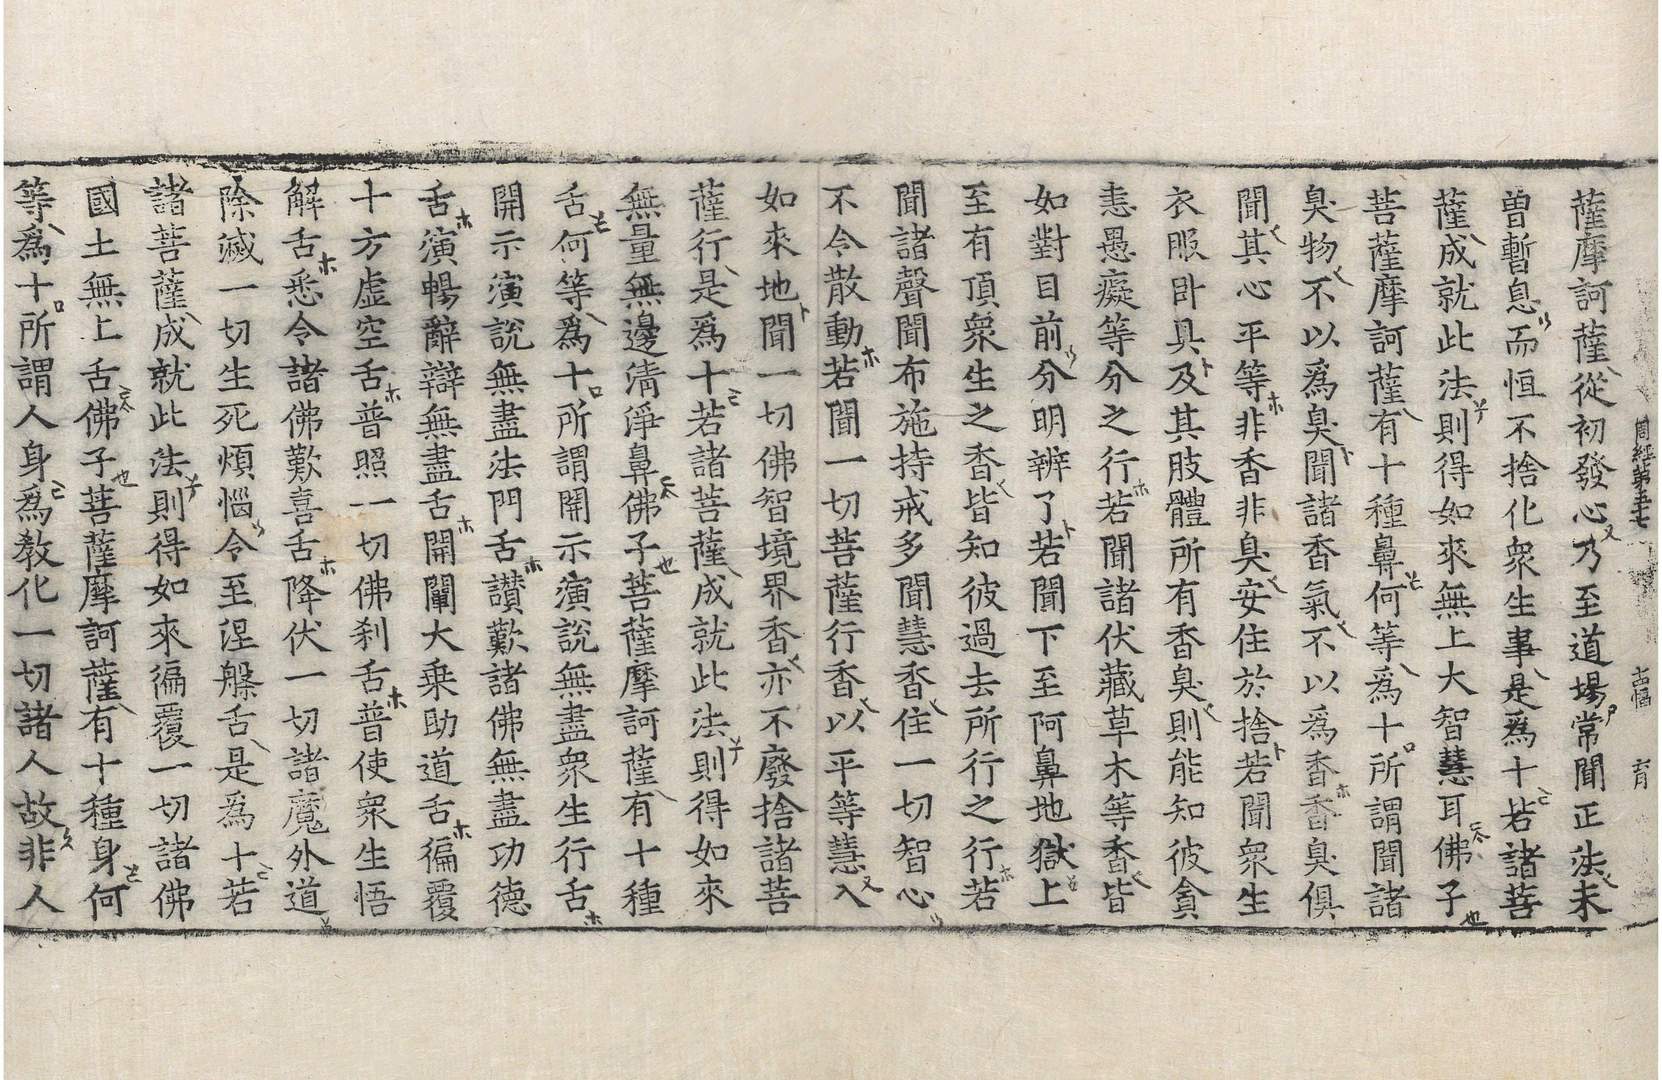 周經第五十七 育
薩摩訶薩從初發心乃至道場常聞正法未
曾暫息而恒不捨化衆生事是爲十若諸菩
薩成就此法則得如來無上大智慧耳佛子
菩薩摩訶薩有十種鼻何等爲十所謂聞諸
臭物不以爲臭聞諸香氣不以爲香香臭俱
聞其心平等非香非臭安住於捨若聞衆生
衣服卧具及其肢體所有香臭則能知彼貪
恚愚癡等分之行若聞諸伏藏草木等香皆
如對目前分明辨了若聞下至阿鼻地獄上
至有頂衆生之香皆知彼過去所行之行若
聞諸聲聞布施持戒多聞慧香住一切智心
不令散動若聞一切菩薩行香以平等慧入
如來地聞一切佛智境界香亦不廢捨諸菩
薩行是爲十若諸菩薩成就此法則得如來
無量無邊淸淨鼻佛子菩薩摩訶薩有十種
舌何等爲十所謂開示演說無盡衆生行舌
開示演說無盡法門舌讃歎諸佛無盡功德
舌演暢辭辯無盡舌開闡大乗助道舌徧覆
十方虛空舌普照一切佛刹舌普使衆生悟
解舌悉令諸佛歎喜舌降伏一切諸魔外道
除滅一切生死煩惱令至涅槃舌是爲十若
諸菩薩成就此法則得如來徧覆一切諸佛
國土無上舌佛子菩薩摩訶薩有十種身何
等爲十所謂人身爲教化一切諸人故非人